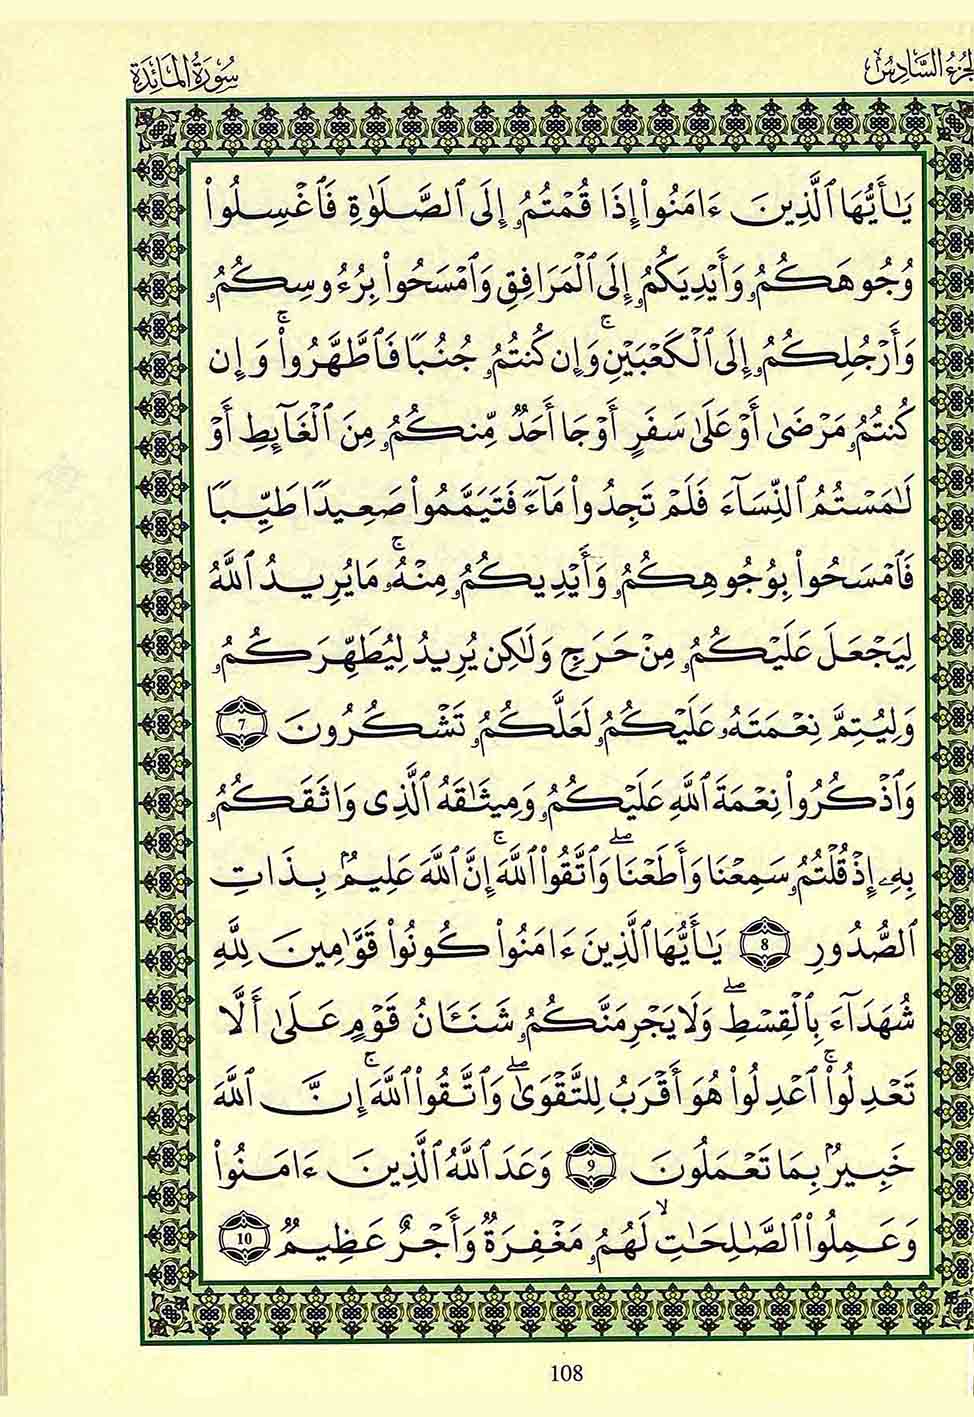 لجُزءُ السَّادِسُ
سُورَةُ المَائِدَة
يَٰٓأَيُّهَا اَ۬لَّذِينَ ءَامَنُواْ إِذَا قُمْتُمُۥٓ إِلَى اَ۬لصَّلَوٰةِ فَاَغْسِلُواْ
وُجُوهَكُمُۥ وَأَيْدِيَكُمُۥ إِلَى اَ۬لْمَرَافِقِ وَاَمْسَحُواْ بِرُءُوسِكُمُۥ
وَأَرْجُلِكُمُۥ إِلَى اَ۬لْكَعْبَيْنِۚ وَإِن كُنتُمُۥ جُنُبًا فَاَطَّهَّرُواْۚ وَإِن
كُنتُمُۥ مَرْضَىٰ أَوْ عَلَىٰ سَفَرٍ أَوْ جَا أَحَدٌ مِّنكُمُۥ مِنَ اَ۬لْغَآئِطِ أَوْ
لَٰمَسْتُمُ اُ۬لنِّسَآءَ فَلَمْ تَجِدُواْ مَآءً فَتَيَمَّمُواْ صَعِيدًا طَيِّبًا
فَاَمْسَحُواْ بِوُجُوهِكُمُۥ وَأَيْدِيكُمُۥ مِنْهُۥۚ مَا يُرِيدُ اُ۬للَّهُ
لِيَجْعَلَ عَلَيْكُمُۥ مِنْ حَرَجٍ وَلَٰكِن يُرِيدُ لِيُطَهِّرَكُمُۥ
وَلِيُتِمَّ نِعْمَتَهُۥ عَلَيْكُمُۥ لَعَلَّكُمُۥ تَشْكُرُونَ 7
وَاَذْكُرُواْ نِعْمَةَ اَ۬للَّهِ عَلَيْكُمُۥ وَمِيثَٰقَهُ اُ۬لَّذِى وَاثَقَكُمُۥ
بِهِۦٓ إِذْ قُلْتُمُۥ سَمِعْنَا وَأَطَعْنَاۖ وَاَتَّقُواْ اُ۬للَّهَۚ إِنَّ اَ۬للَّهَ عَلِيمٌۢ بِذَاتِ
اِ۬لصُّدُورِ 8 يَٰٓأَيُّهَا اَ۬لَّذِينَ ءَامَنُواْ كُونُواْ قَوَّٰمِينَ لِلَّهِ
شُهَدَآءَ بِالْقِسْطِۖ وَلَا يَجْرِمَنَّكُمُۥ شَنَـَٔانُ قَوْمٍ عَلَىٰٓ أَلَّا
تَعْدِلُواْۚ اُ۪عْدِلُواْ هُوَ أَقْرَبُ لِلتَّقْوَىٰۖ وَاَتَّقُواْ اُ۬للَّهَۚ إِنَّ اَ۬للَّهَ
خَبِيرٌۢ بِمَا تَعْمَلُونَ 9 وَعَدَ اَ۬للَّهُ اُ۬لَّذِينَ ءَامَنُواْ
وَعَمِلُواْ اُ۬لصَّٰلِحَٰتِۙ لَهُمُۥ مَغْفِرَةٌ وَأَجْرٌ عَظِيمٌ 10
108